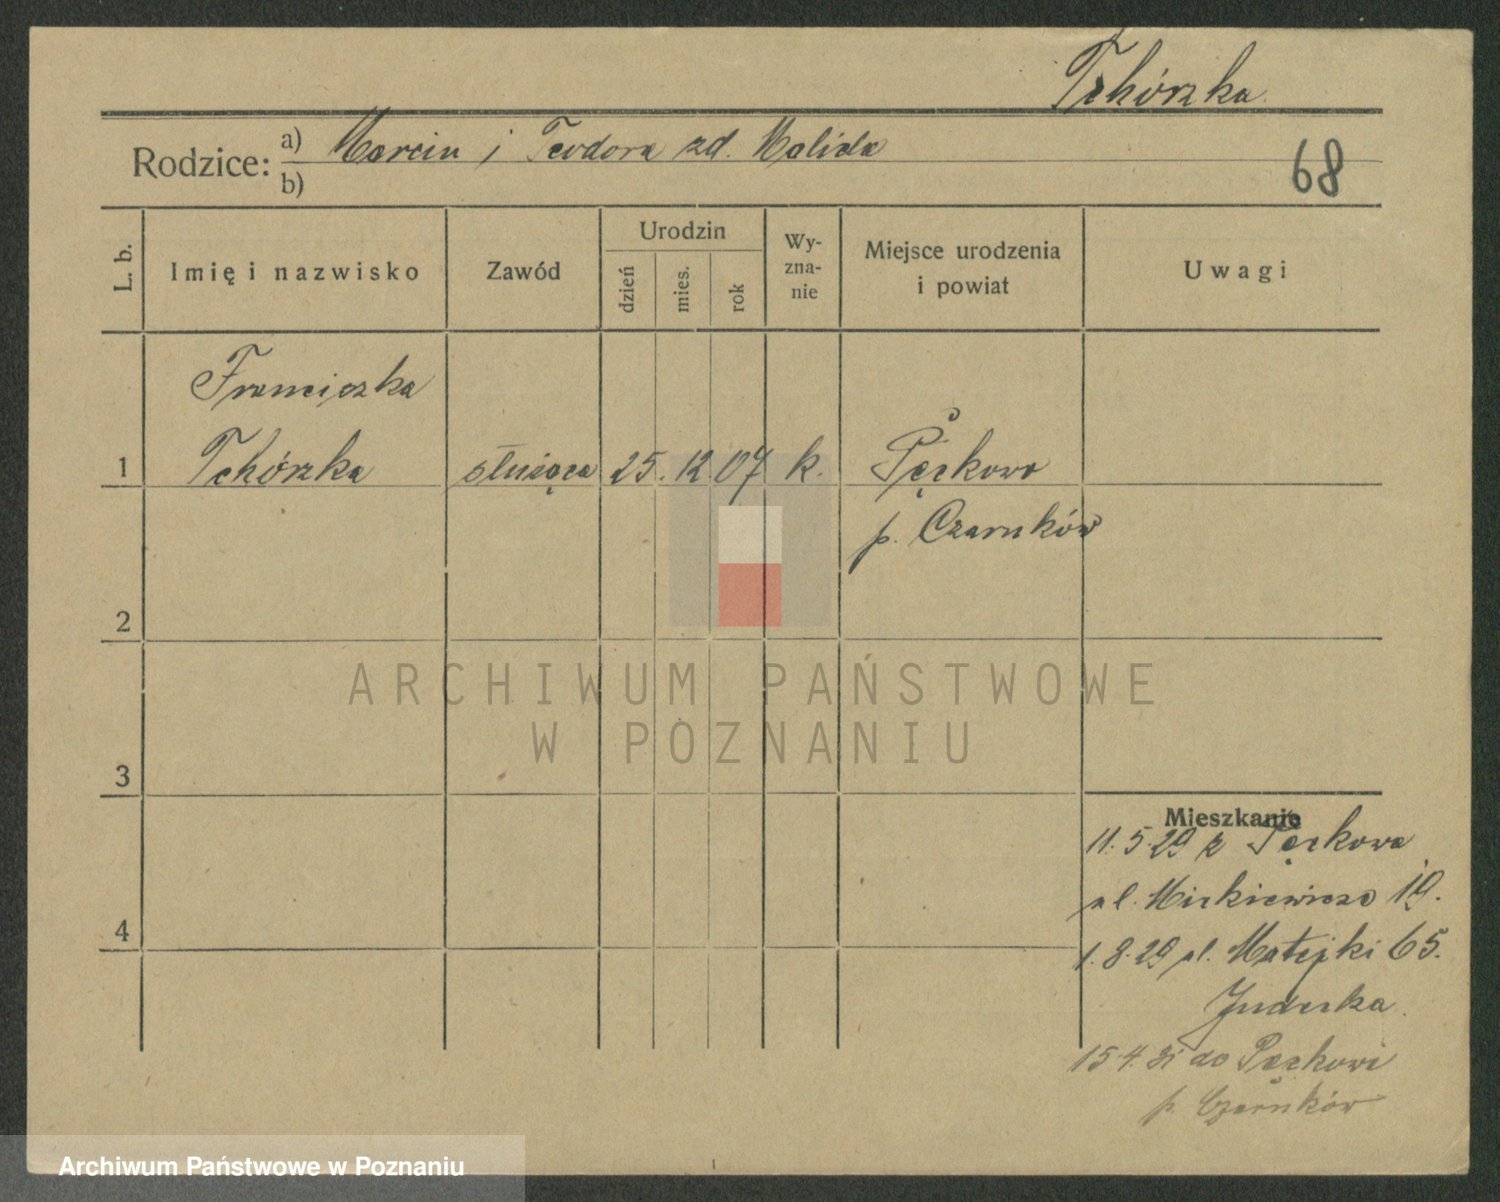 Tchórzka
Rodzice: a) Marcin i Teodora zd. Malicka
b)
68
L. b.
Imię i nazwisko
Zawód
Urodzin
dzień
mies.
rok
Wy-
zna-
nie
Miejsce urodzenia
i powiat
Uwagi
Franciszka
1 Tchórzka służąca 25. 12. 07 k. Pęckowo
p. Czarnków
2
3
4
Mieszkanie
11.5.29 z Pęckowa
ul. Mickiewicza 19.
1.8.29 ul. Matejki 65.
15.4.31 do Pęckowa
p. Czarnków
ARCHIWUM PAŃSTWOWE
W POZNANIU
Archiwum Państwowe w Poznaniu